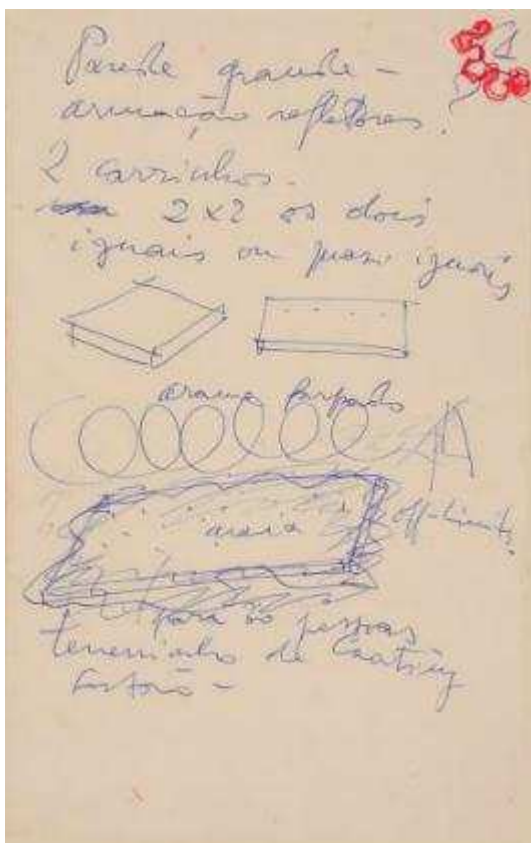 1
Parede grande –
armação refletores.
2 carrinhos.
2x2 os dois
iguais ou quase iguais
arame farpado
areia
off-limits
para 80 pessoas
terreninho de